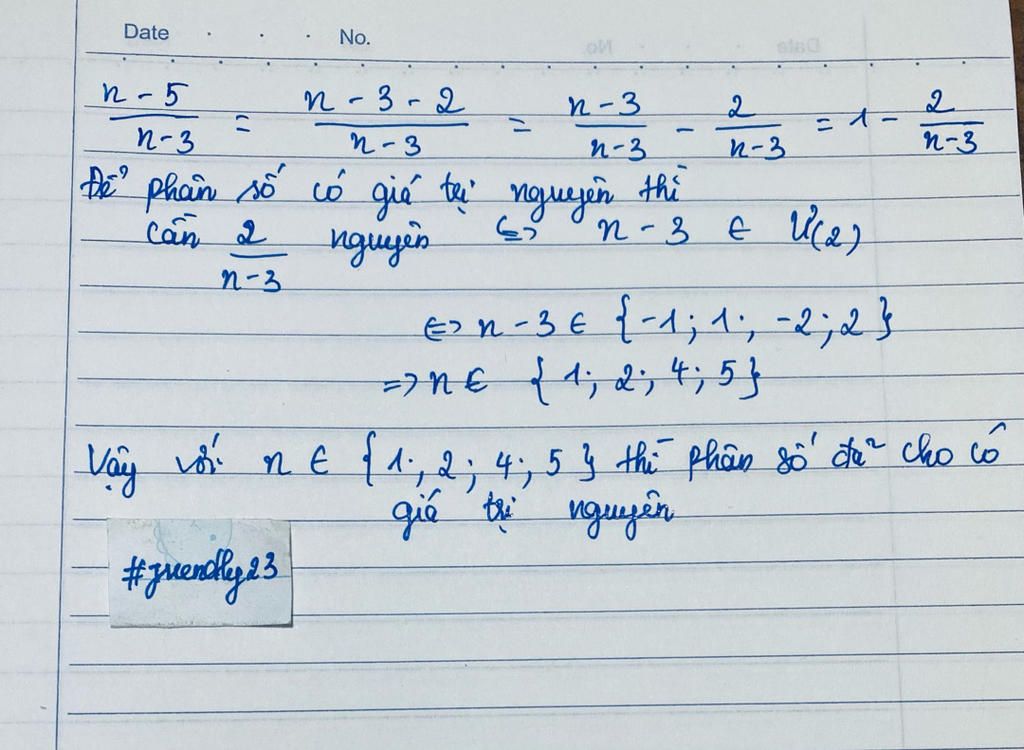 Date . . . No.
n - 5 / n - 3 = n - 3 - 2 / n - 3 = n - 3 / n - 3 - 2 / n - 3 = 1 - 2 / n - 3
Để phân số có giá trị nguyên thì
cần 2 / n - 3 nguyên <=> n - 3 ∈ Ư(2)
<=> n - 3 ∈ {-1; 1; -2; 2}
=> n ∈ {1; 2; 4; 5}
Vậy với n ∈ {1; 2; 4; 5} thì phân số đã cho có
giá trị nguyên